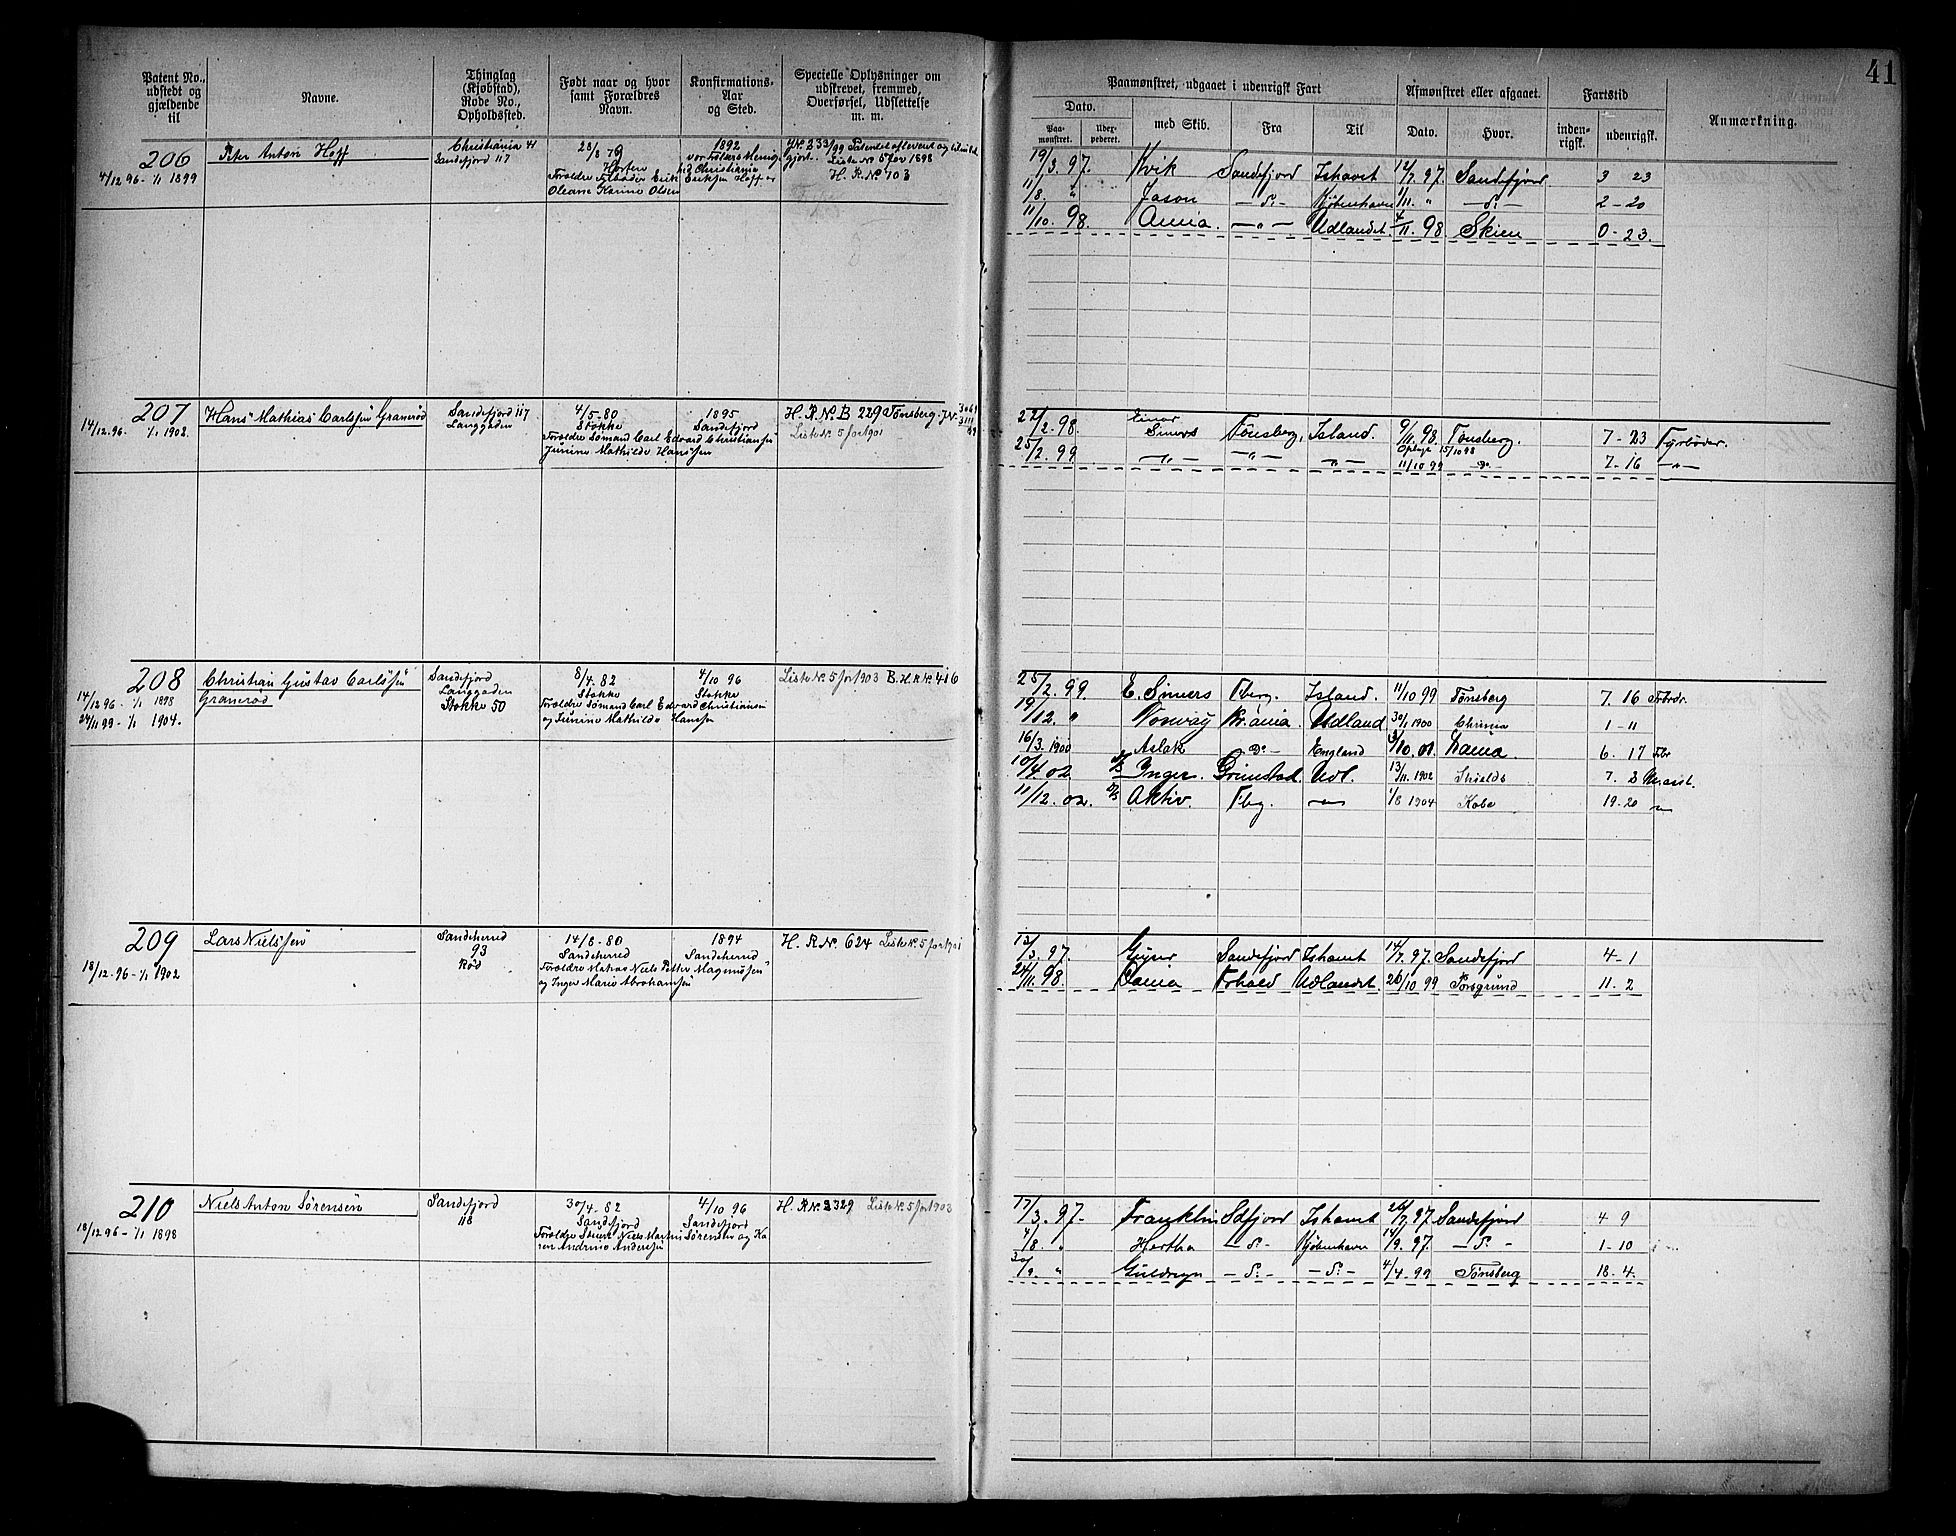 41
Patent No.,
udstedt og
gjældende
til
Navne.
Thinglag
(Kjøbstad),
Rode No.,
Opholdssted.
Født naar og hvor
samt Forældres
Navn.
Konfirmations-
Aar
og Sted.
Specielle Oplysninger om
udskrevet, fremmed,
Overførsel, Udslettelse
m. m.
Paamønstret, udgaaet i udenrigsk Fart
Dato.
Paa-
mønstret.
med Skib.
Fra
Til
Afmønstret eller afgaaet.
Dato.
Hvor.
Fartstid
inden-
rigsk.
udenrigsk.
Anmærkning.
206
4/12 96 - 1/1 1899
Peter Anton Hoff
Christiania 41
Sandefjord 117
28/8 79
Horten
Forældre Filbøder Erik Eriksen Hoff og
Oleane Karine Olsen
1892
vor Frelsers Menig-
hed Christiania
Patentet afleveret og
gjort. Liste No 5 for 1898
H. R. No 703
19/3. 97. Kvik Sandefjord Ishavet 12/7. 97. Sandefjord 3 23
11/8. " Jason — S: — Kjøbenhavn 11/11. " — S: — 2 - 20
11/10. 98. Amia. — " — Udlandet. 4/11. 98. Skien 0 - 23.
207
14/12. 96. 1/1 1902.
Hans Mathias Carlssen Granerød
Sandefjord 117
Langgaden
4/5 - 80
Stokke
Forældre Sømand Carl Edvard Christiansen
Junine Mathilde Hanssen
1895
Sandefjord
H. R. No B 229 Tønsberg. J. No
Liste No 5 for 1901
22/2. 98. Einar
Simers Tønsberg, Island. 9/11. 98. Tønsberg. 7 - 23 Fyrbøder.
15/10 98
25/2. 99 — " — — " — — " — 11/10 99 Do 7 - 16 — " —
208
14/12 96 - 1/1 1898
24/11 99 - 1/1 1904.
Christian Gustav Carlssen
Granerød
Sandefjord
Langgaden
Stokke 50
8/4. 82
Stokke
Forældre Sømand Carl Edvard Christiansen
og Junine Mathilde Hanssen
4/10 96
Stokke
Liste No 5 for 1903 B. H. R. No 416
25/2. 99 E. Simers Tberg. Island. 11/10 99 Tønsberg 7. 16 Fbødr.
19/12. " Norway Kr.ania. Udland 30/1 1900 Chrania 1 - 11
16/3. 1900 Aslak Do — England 3/10. 01. 6. 17 Fbr
10/4 02 D/S Inger. Grimstad. Udl. 13/11. 1902 Shields 7. 3 M.asst.
11/12. 02. D/S Aktiv. Tbg. — " — 1/8 1904 Kobe 19 - 20 "
209
18/12. 96 - 1/1 1902
Lars Nielssen
Sandeherred
93
Rød
14/8 - 80
Sandeherred
Forældre Matros Niels Petter Magnussen
og Inger Marie Abrahamsen
1894
Sandeherred
H. R. No. 624 Liste No 5 for 1901
13/3. 97. Gijser Sandefjord Ishavet 14/7. 97. Sandefjord 4 - 1
24/11. 98. Tania Frhald Udlandet. 26/10 99 Porsgrund 11 - 2
210
18/12 96 - 1/1 1898
Niels Anton Sørensen
Sandefjord
118
30/4. 82
Sandefjord
Forældre Skibst. Niels Martin Sørensen og Ka
ren Andrine Andersen
4/10 96
Sandefjord
H. R. No. 2329 Liste No 5 for 1903
17/3. 97. Franklin Sdfjord Ishavet 26/7. 97. Sandefjord 4 9
4/8. " Hertha — S: — Kjøbenhavn 14/9. 97. — S: — 1 - 10
30/9. " Guldregn — S: — — S: — 4/4. 99 Tønsberg 18. 4.